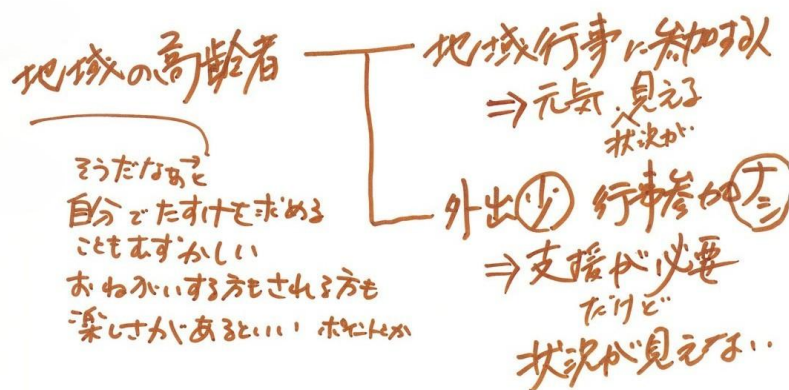 地域の高齢者
そうだなぁ→と
自分でたすけを求める
こともむずかしい
おねがいする方もされる方も
楽しさがあるといい ポイントとか
地域行事に参加する人
⇒元気、見える
状況が
外出少 行事参加ナシ
⇒支援が必要
だけど
状況が見えない…